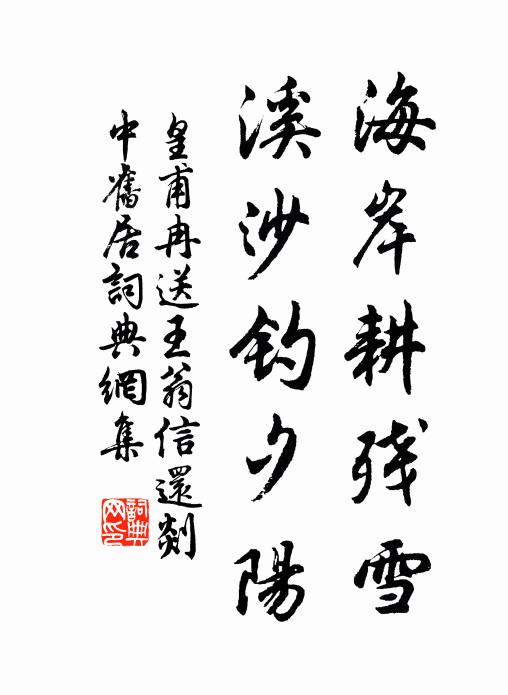 海岸耕残雪
溪沙钓夕陽
皇甫冉送王翁信還剡
中舊居詞典網集
詞典
网印